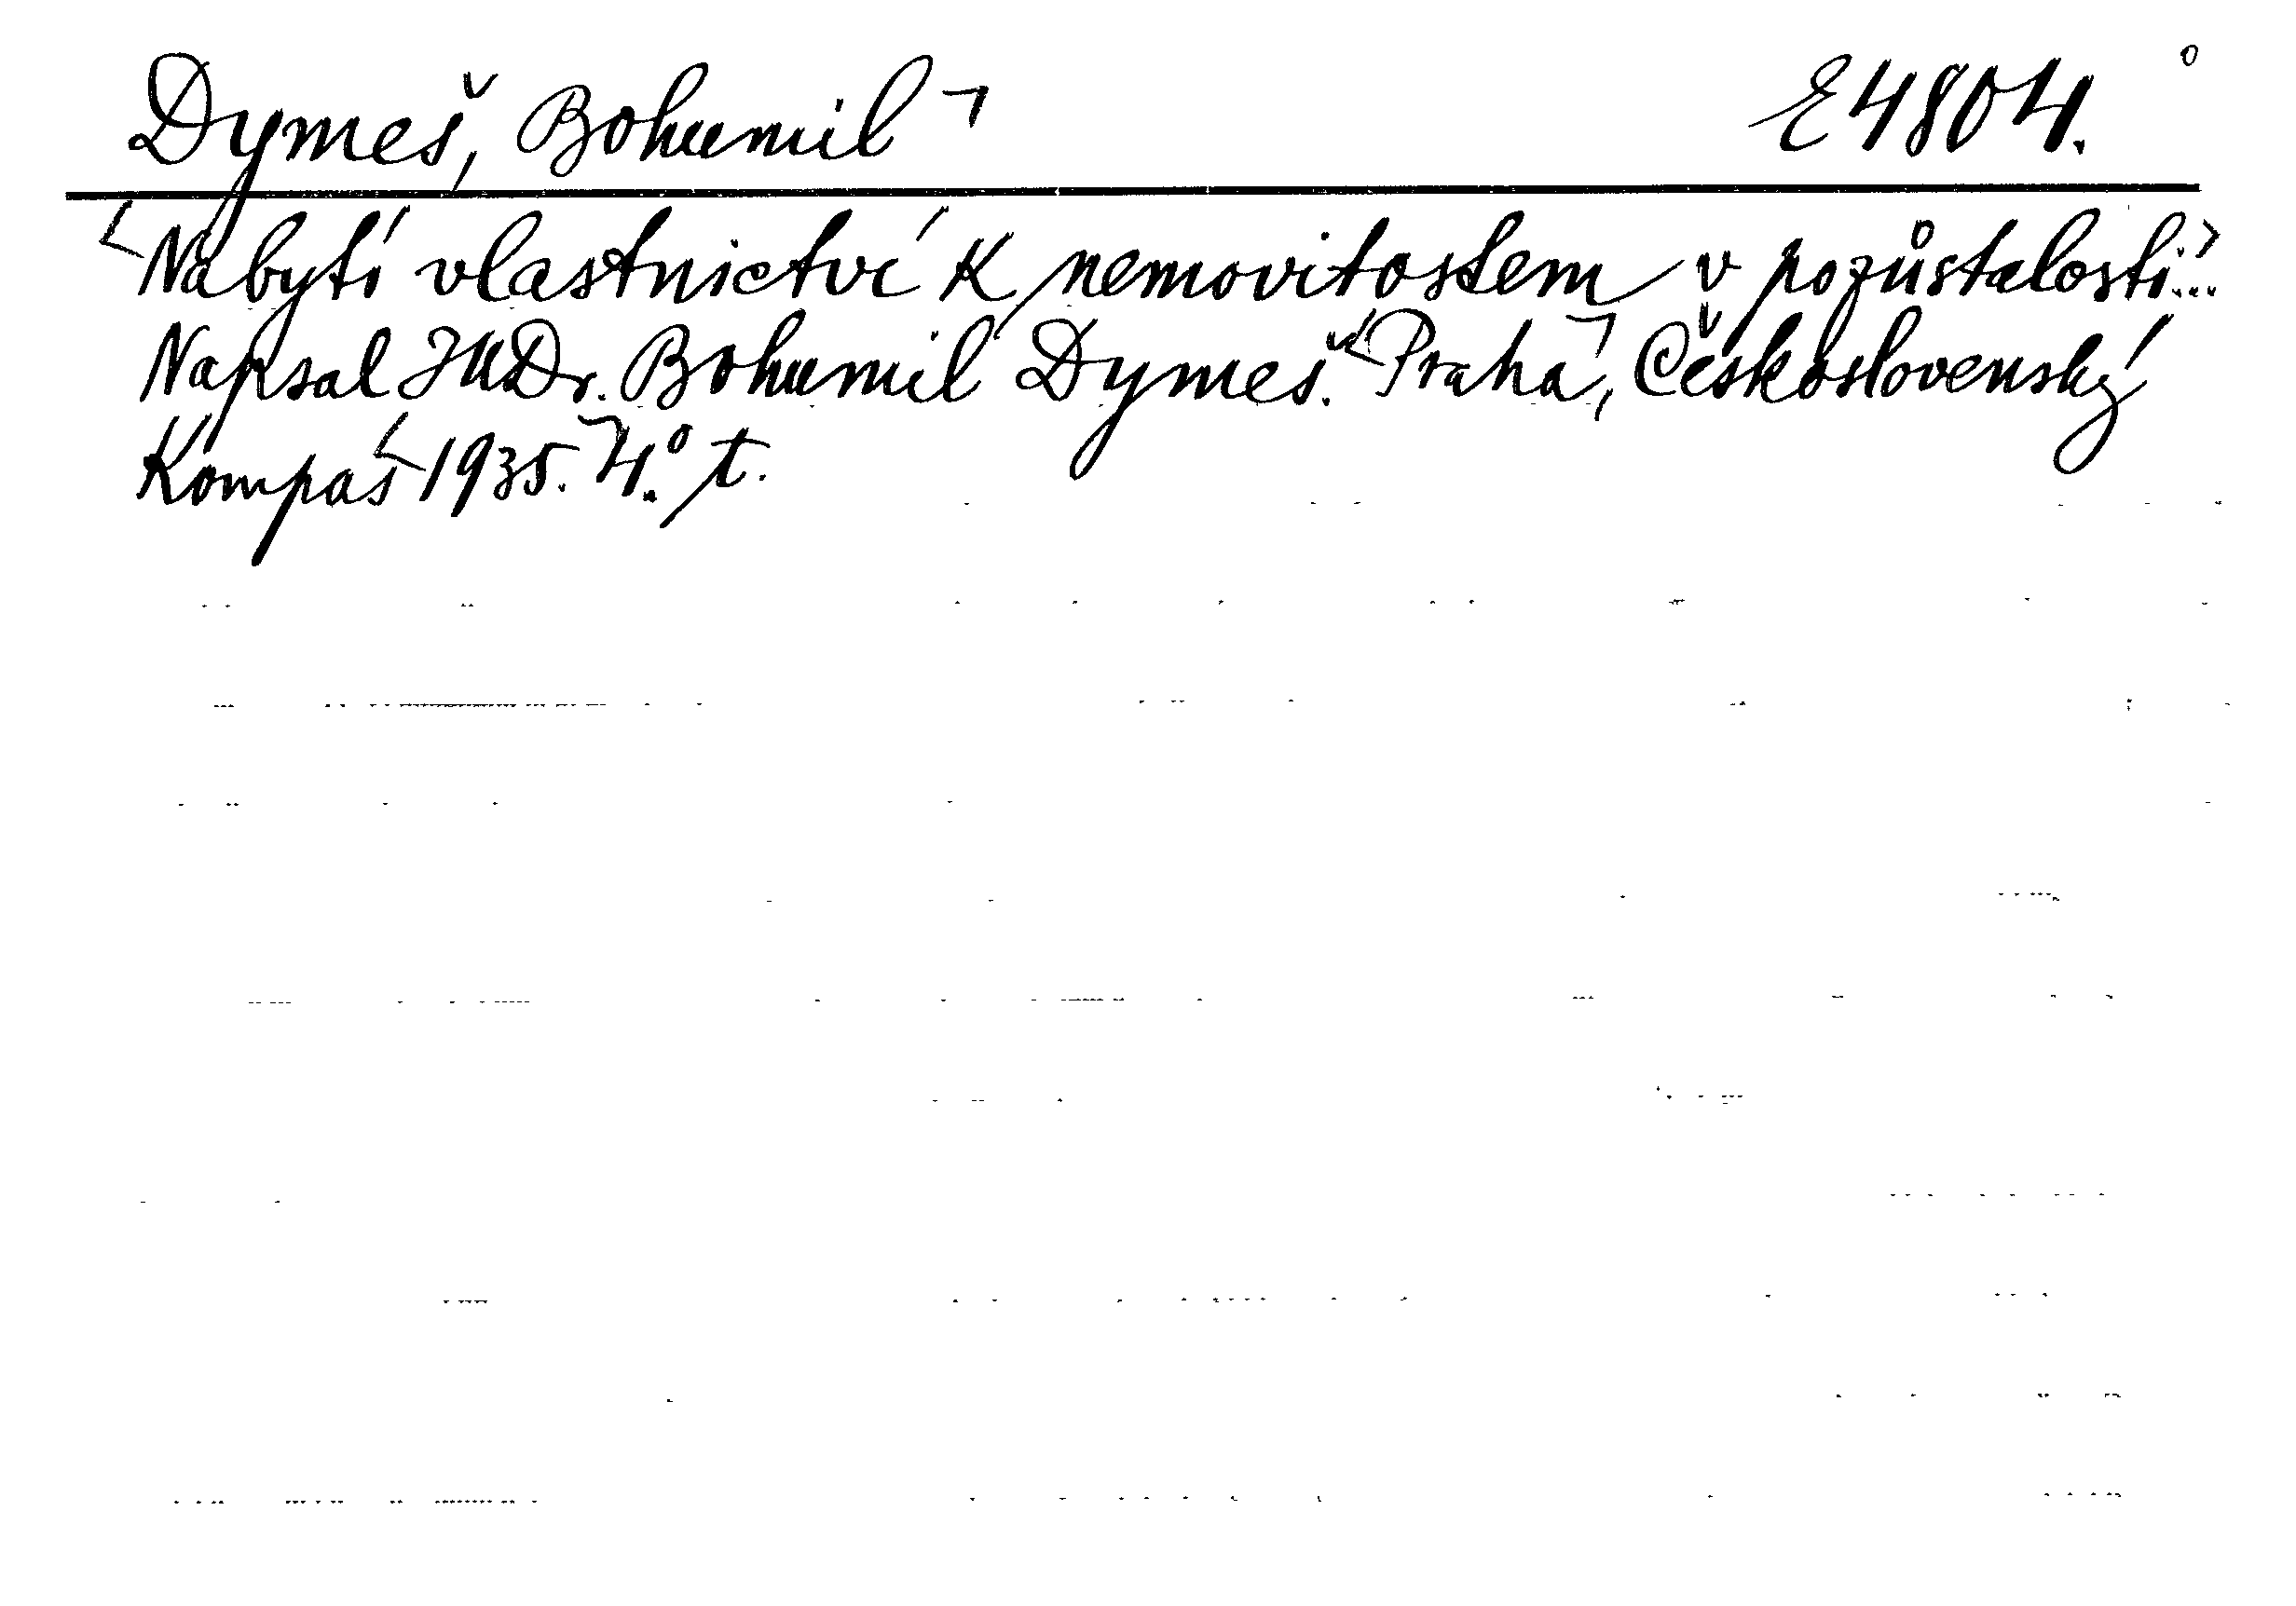 Dymeš, Bohumil E4804.
Nabytí vlastnictví k nemovitostem v pozůstalosti...
Napsal JUDr. Bohumil Dymeš. Praha, Československý
Kompas 1935. 4.° t.